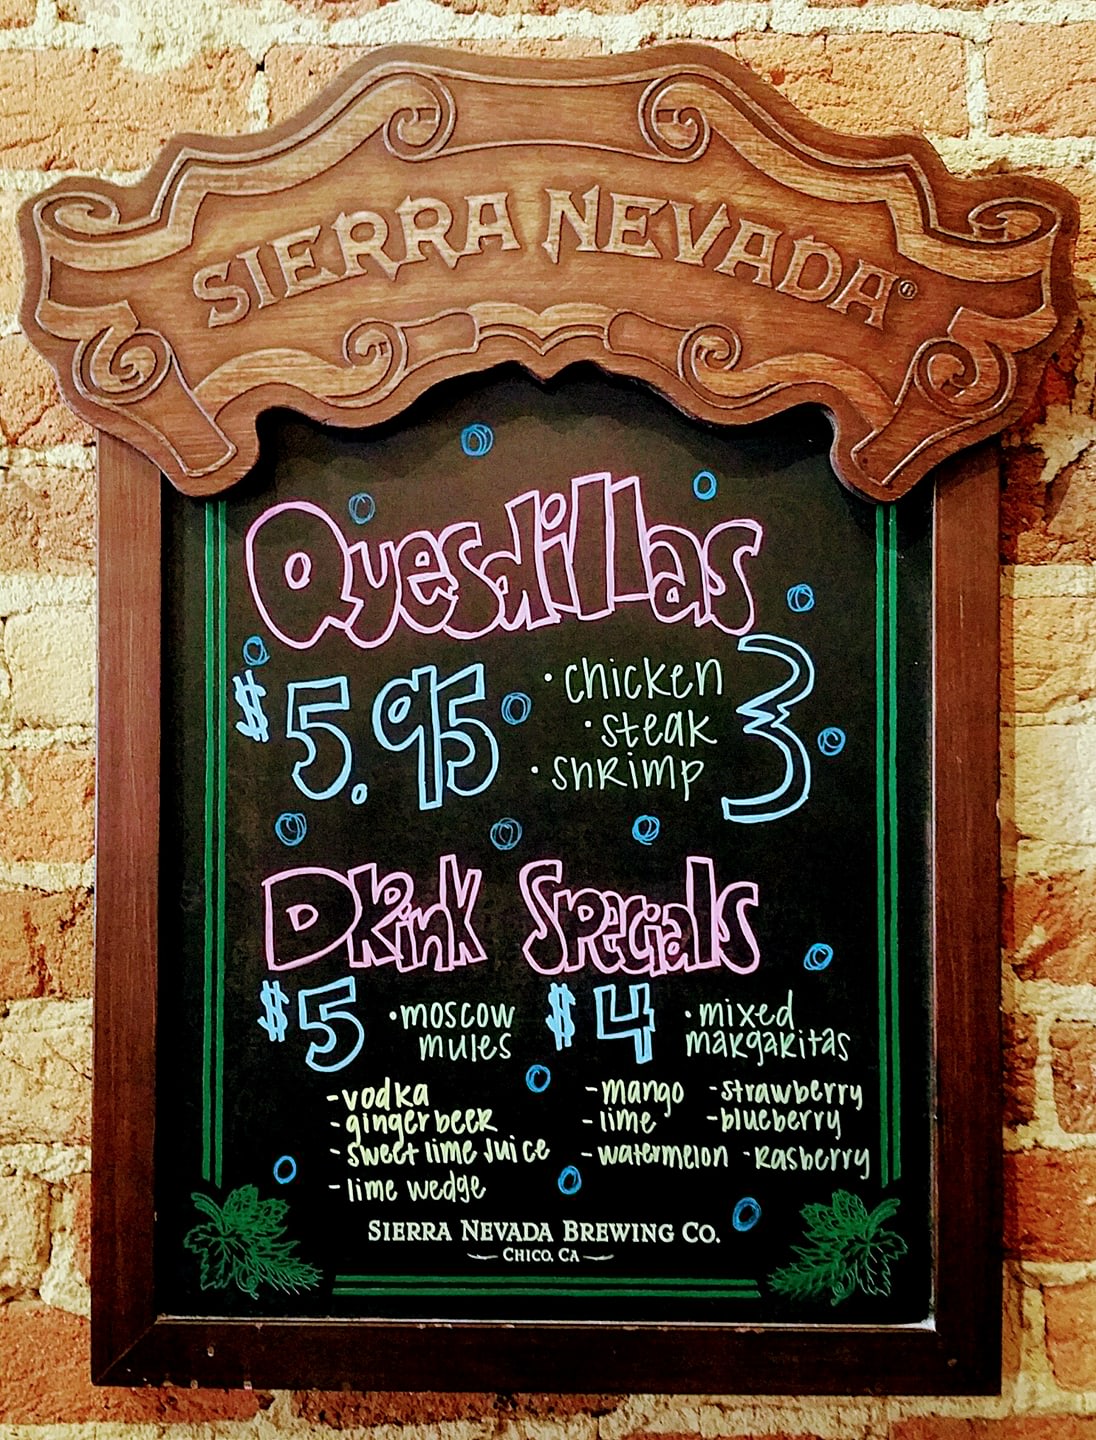 SIERRA NEVADA®
Quesdillas
$5.95
· chicken
· steak
· shrimp
Drink Specials
$5 · moscow mules
- vodka
- ginger beer
- sweet lime juice
- lime wedge
$4 · mixed margaritas
- mango - strawberry
- lime - blueberry
- watermelon - Rasberry
SIERRA NEVADA BREWING CO.
CHICO, CA